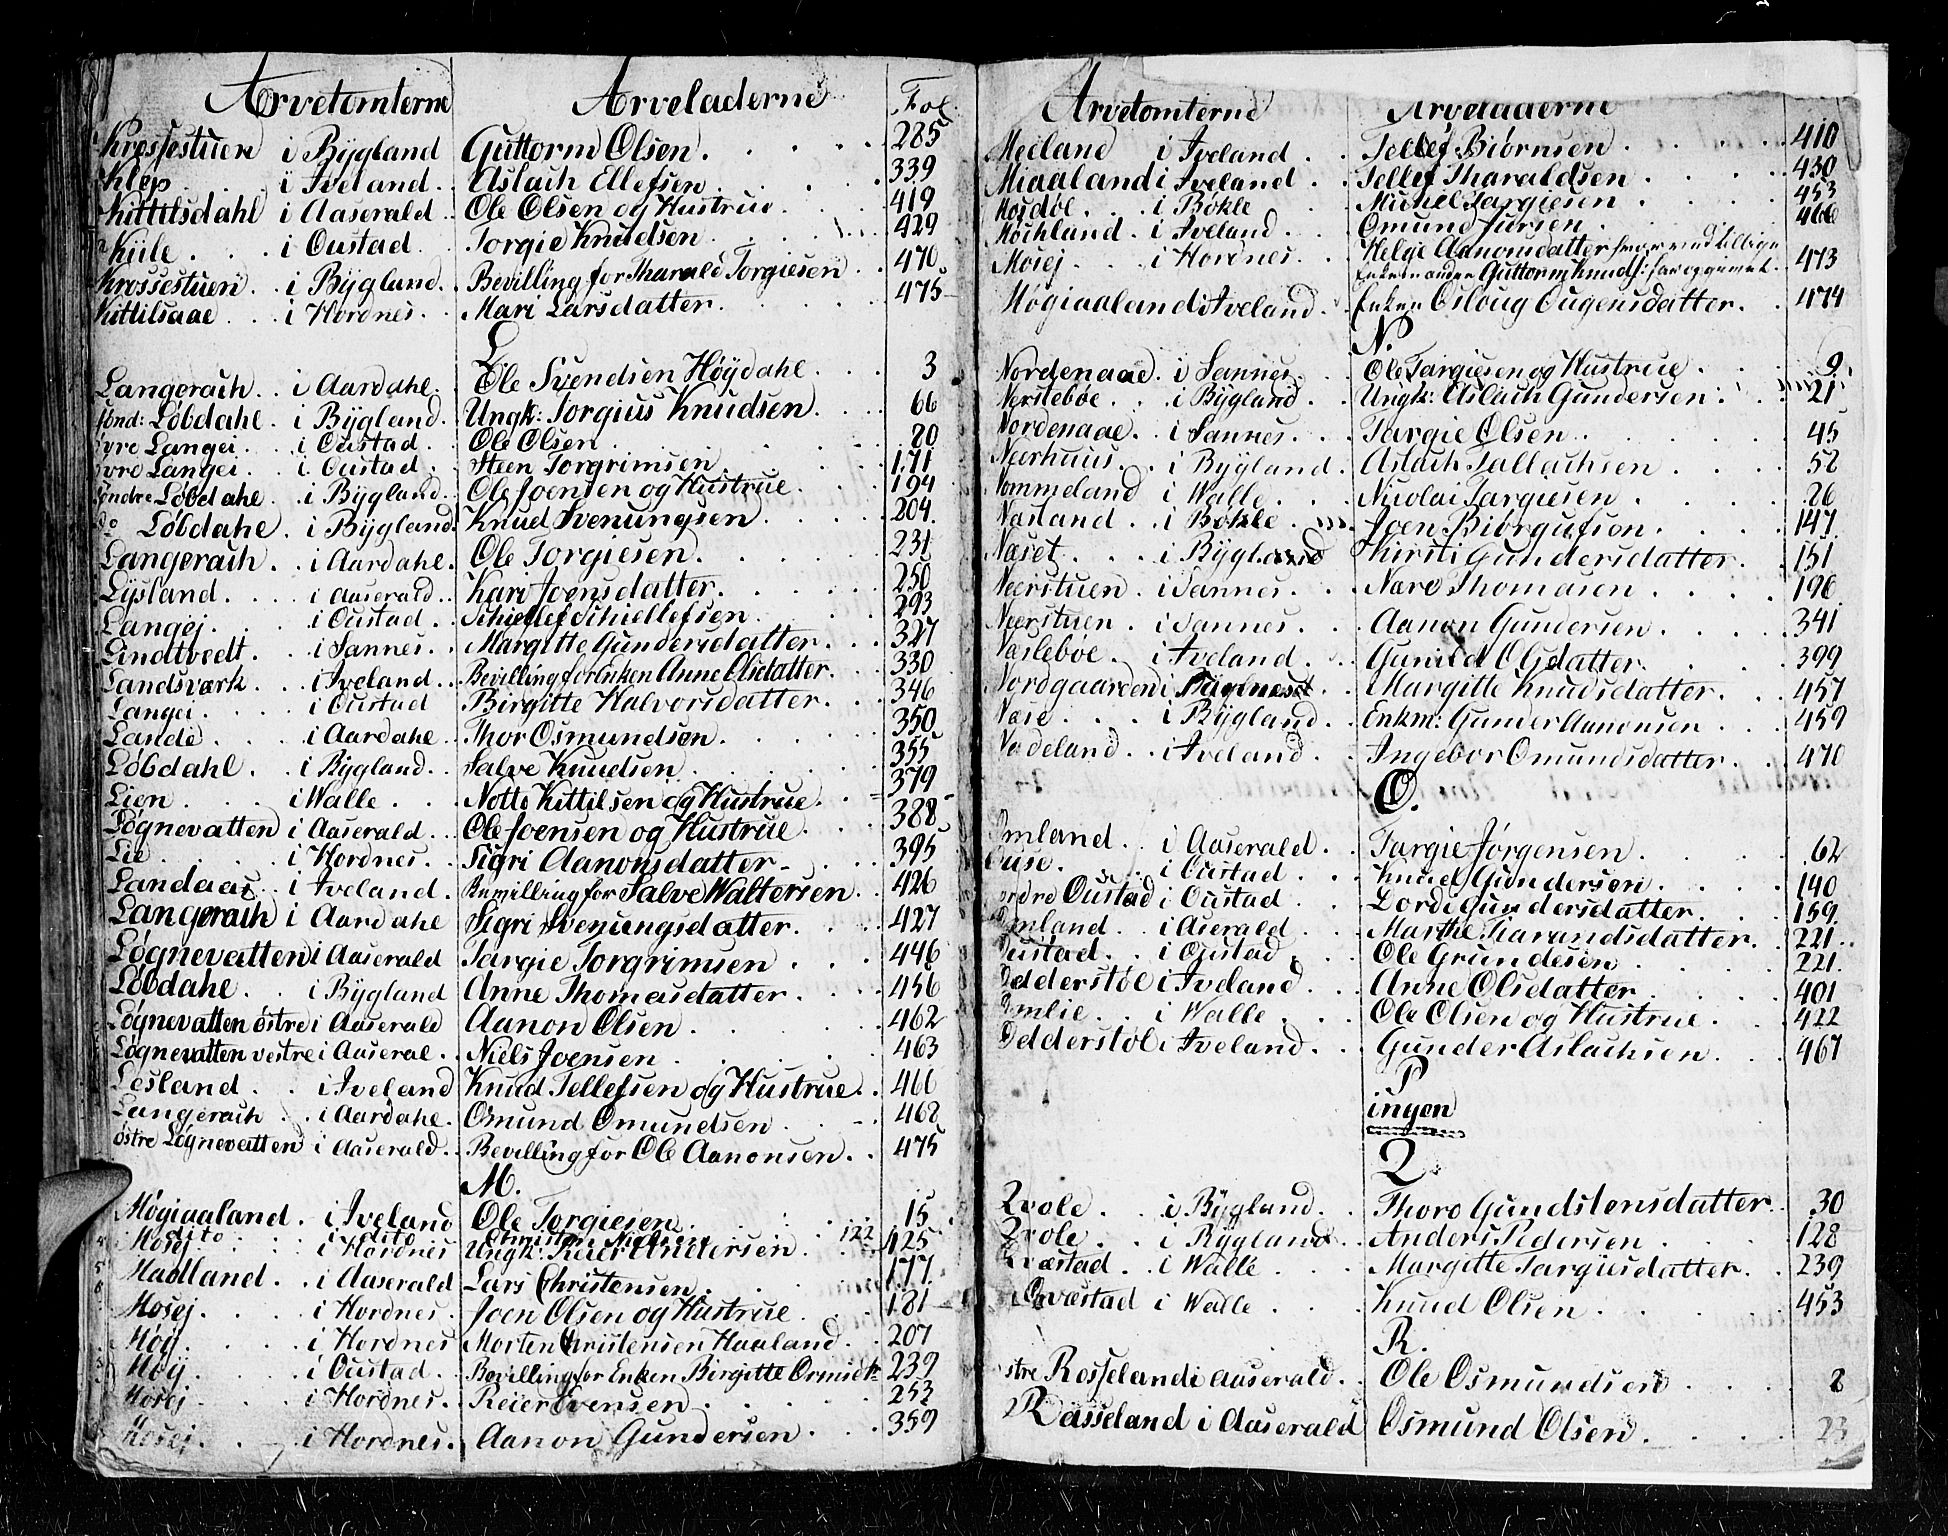 Arvetomterne Arveladerne Fol.
Krossestuen i Bÿgland Guttorm Olsen 285
Klep i Iveland Aslach Ellefsen 339
Kittilsdahl i Aaserald Ole Olsen og Hustrue 419
Kiile i Oustad Torgie Knudsen 429
Krossestuen i Bÿgland Bevilling for Tharald Torgiesen 470
Kittilsaae i Hordnes Mari Larsdatter 475
L
Langerach i Aardahl Ole Svendsen Höÿdahl 3
Löbdahl i Bÿgland Ungk: Torgius Knudsen 66
Langei i Oustad Ole Olsen 80
Langei i Oustad Steen Torgrimsen 171
Löbdahl i Bÿgland Ole Joensen og Hustrue 194
do Löbdahl i Bÿgland Knud Svenungsen 204
Langerach i Aardahl Ole Torgiesen 231
Lÿsland i Aaserald Kari Joensdatter 250
Langej i Oustad Schiellef Schiellefsen 293
Lindtvedt i Sannes Margitte Gundersdatter 327
Landsværk i Iveland Bevilling for Enken Anne Olsdatter 330
Langei i Oustad Birgitte Halvorsdatter 346
Lande i Aardahl Thor Osmundsen 350
Löbdahl i Bÿgland Salve Knudsen 355
Lien i Walle Notto Kittilsen og Hustrue 379
Lögnevatten i Aaserald Ole Joensen og Hustrue 388
Lie i Hordnes Sigri Aanonsdatter 395
Landaas i Iveland Bewilling for Salve Waltersen 426
Langerach i Aardahl Sigri Svenungsdatter 427
Lögnevatten i Aaserald Targie Torgrimsen 446
Löbdahl i Bÿgland Anne Thomasdatter 456
Lögnevatten östre i Aaserald Aanon Olsen 462
Lögnevatten vestre i Aaseral Niels Joensen 463
Lesland i Iveland Knud Tellefsen og Hustrue 466
Langerach i Aardahl Osmund Omundsen 468
östre Lögnevatten i Aaserald Bevilling for Ole Aanonsen 475
M.
Mögiaaland i Iveland Ole Torgiesen 15
dito i dito Christen Nielsen 122
Mosej i Hordnes Ungk: Reier Andersen 125
Hadland i Aaserald Lars Christensen 177
Mosej i Hordnes Joen Olsen og Hustrue 181
Möÿ i Hordnes Morten Christensen Haaland 207
Möÿ i Oustad Bevilling for Enken Birgitte Ormsd 239
Mosej i Hordnes Reier Evensen 253
Mosej i Hordnes Aanon Gundersen 359
Arvetomterne Arveladerne
Meiland i Iveland Tellef Biörnsen 410
Miaaland i Iveland Tellef Tharaldsen 430
Mosdöl i Bökle Michel Targiesen 453
Möchland i Iveland Omund Jursen 466
Mosej i Hordnes Helge Aanonsdatter
Enken Guttorm Knuds: 473
Mögiaaland i Iveland Enken Osloug Ougensdatter 474
N.
Nordenaae i Sannes Ole Targiesen og Hustrue 9
Nersteböe i Bÿgland Ungk: Aslach Gundersen 21
Nordenaae i Sannes Targie Olsen 45
Neerhuus i Bÿgland Aslach Tallachsen 52
Nommeland i Walle Nicolai Targiesen 26
Næsland i Bökle Joen Biörgufsen 147
Næset i Bÿgland Kirsti Gundersdatter 151
Neerstuen i Sannes Nære Thomasen 196
Neerstuen i Sannes Aanon Gundersen 341
Næsleböe i Iveland Gunild Olsdatter 399
Nordgaarden i Margitte Knudsdatter 457
Nese i Bÿgland Enkm: Gunder Aanonsen 459
Nadeland i Iveland Ingebor Omundsdatter 470
O.
Omland i Aaserald Targie Jörgensen 62
Ouse i Oustad Knud Gundersen 140
Oustad i Oustad Dordi Gundersdatter 159
Omland i Aserald Marthe Tarandsdatter 221
Oustad i Oustad Ole Grundesen 221
Oddersöl i Iveland Anne Olsdatter 401
Omlie i Walle Ole Olsen og Hustrue 422
Odderstöl i Iveland Gunder Aslachsen 467
P
ingen
Q
Qvole i Bÿgland Thoro Gundstensdatter 30
Qvole i Bÿgland Anders Pedersen 128
Qvæstad i Walle Margitte Targiesdatter 239
Qvæstad i Walle Knud Olsen 453
R.
stre Rosseland i Aaserald Ole Osmundsen 8
Rosseland i Aaserald Osmund Olsen 23